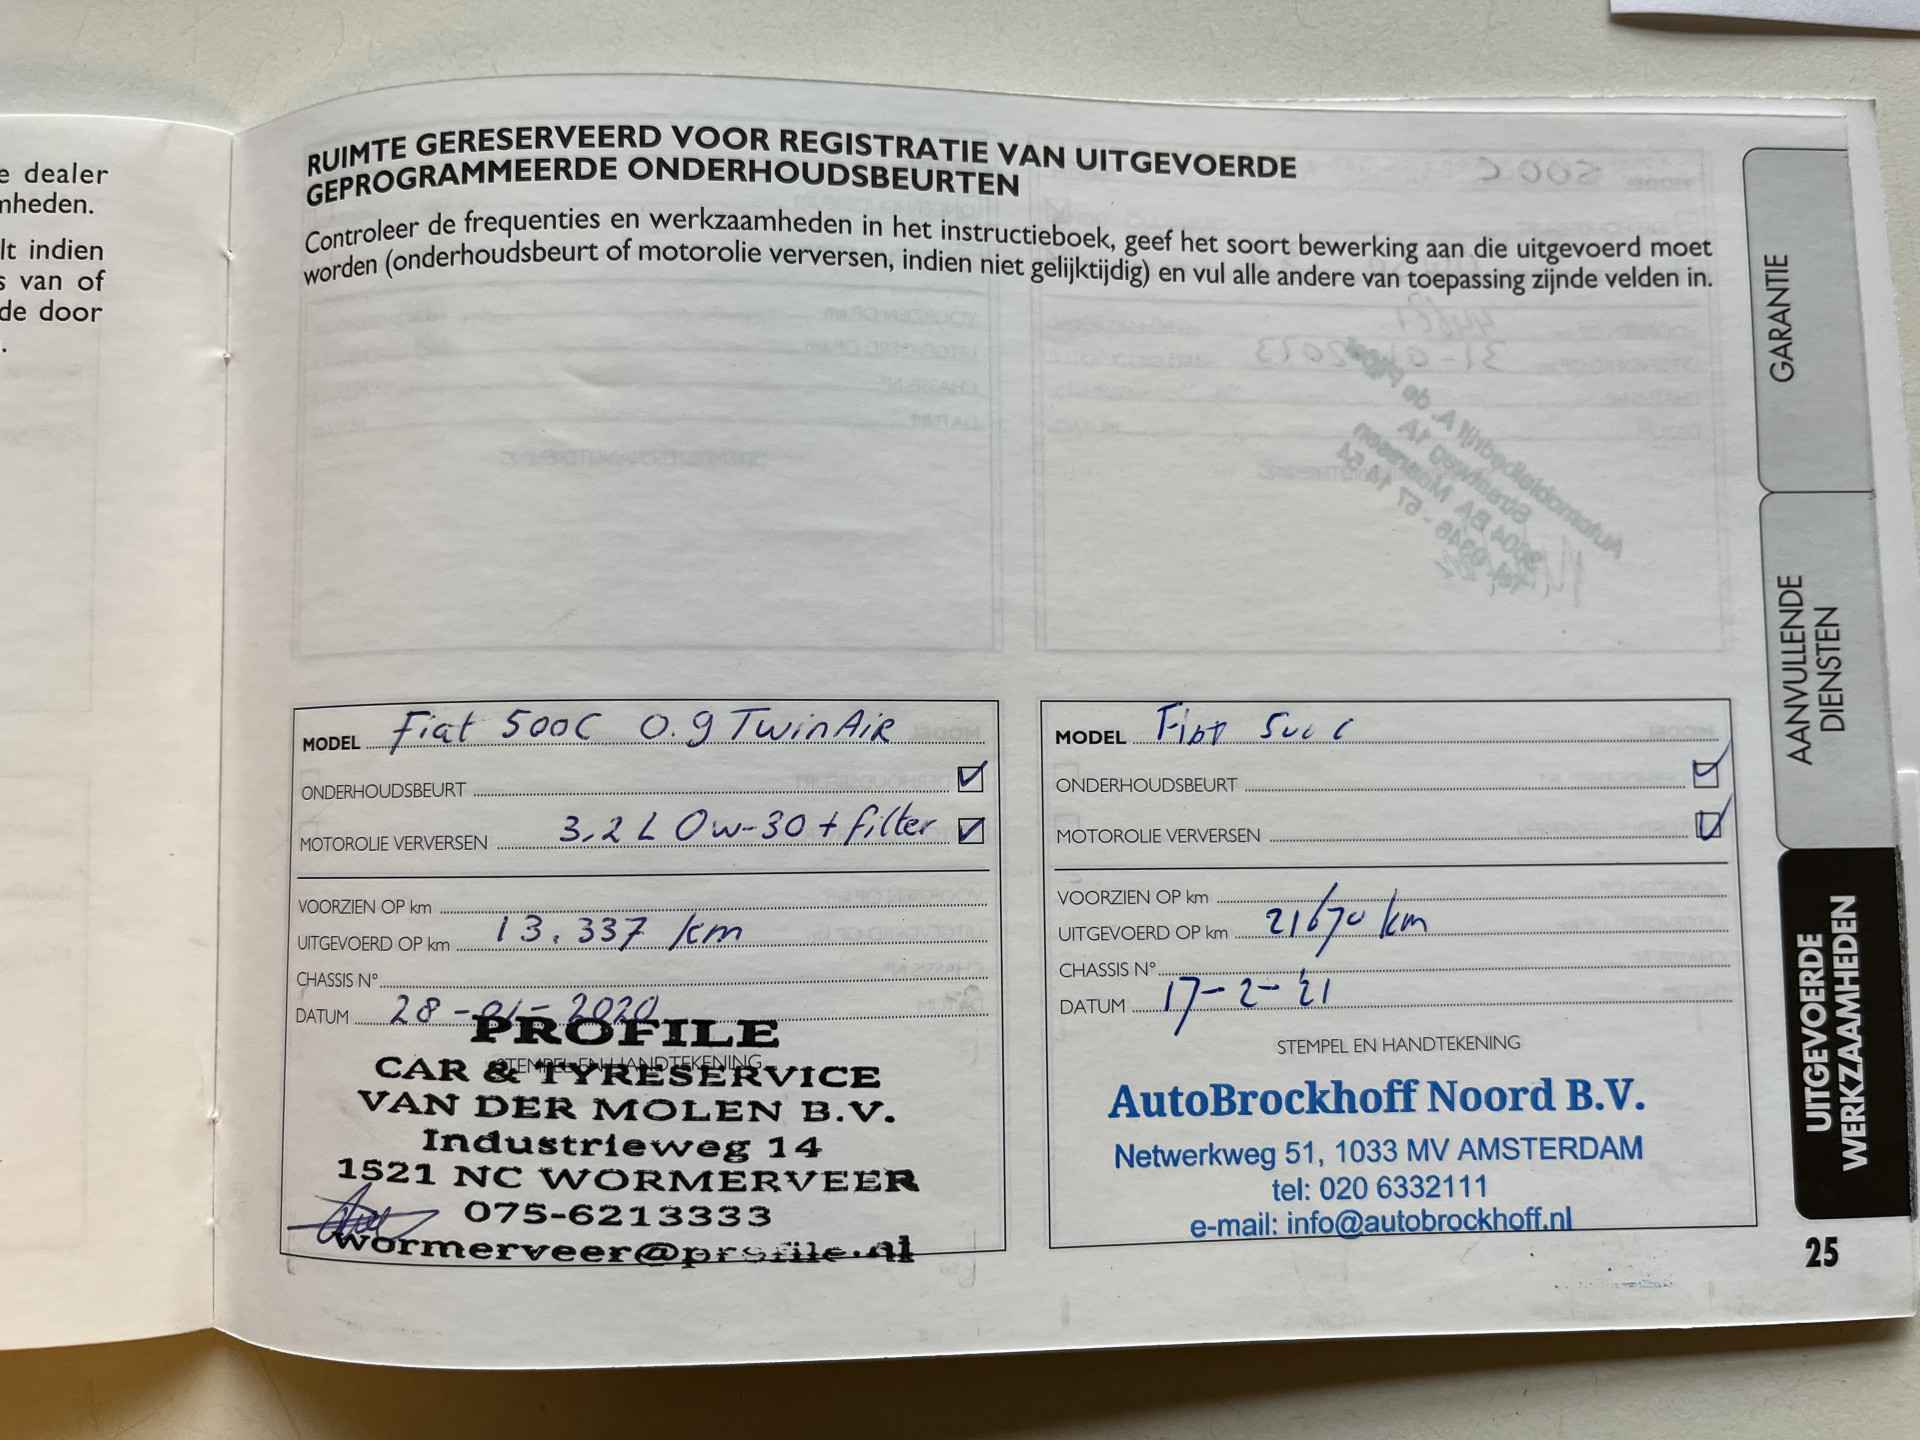 e dealer
mheden.
lt indien
s van of
de door
.
RUIMTE GERESERVEERD VOOR REGISTRATIE VAN UITGEVOERDE
GEPROGRAMMEERDE ONDERHOUDSBEURTEN
Controleer de frequenties en werkzaamheden in het instructieboek, geef het soort bewerking aan die uitgevoerd moet
worden (onderhoudsbeurt of motorolie verversen, indien niet gelijktijdig) en vul alle andere van toepassing zijnde velden in.
MODEL Fiat 500C 0.9 TwinAir
ONDERHOUDSBEURT
MOTOROLIE VERVERSEN 3,2 L 0w-30 + filter
VOORZIEN OP km
UITGEVOERD OP km 13.337 km
CHASSIS N°
DATUM 28-01-2020
STEMPEL EN HANDTEKENING
PROFILE
CAR & TYRESERVICE
VAN DER MOLEN B.V.
Industrieweg 14
1521 NC WORMERVEER
075-6213333
wormerveer@profile.nl
MODEL Fiat 500 C
ONDERHOUDSBEURT
MOTOROLIE VERVERSEN
VOORZIEN OP km
UITGEVOERD OP km 21670 km
CHASSIS N°
DATUM 17-2-'21
STEMPEL EN HANDTEKENING
AutoBrockhoff Noord B.V.
Netwerkweg 51, 1033 MV AMSTERDAM
tel: 020 6332111
e-mail: info@autobrockhoff.nl
GARANTIE
AANVULLENDE
DIENSTEN
UITGEVOERDE
WERKZAAMHEDEN
25